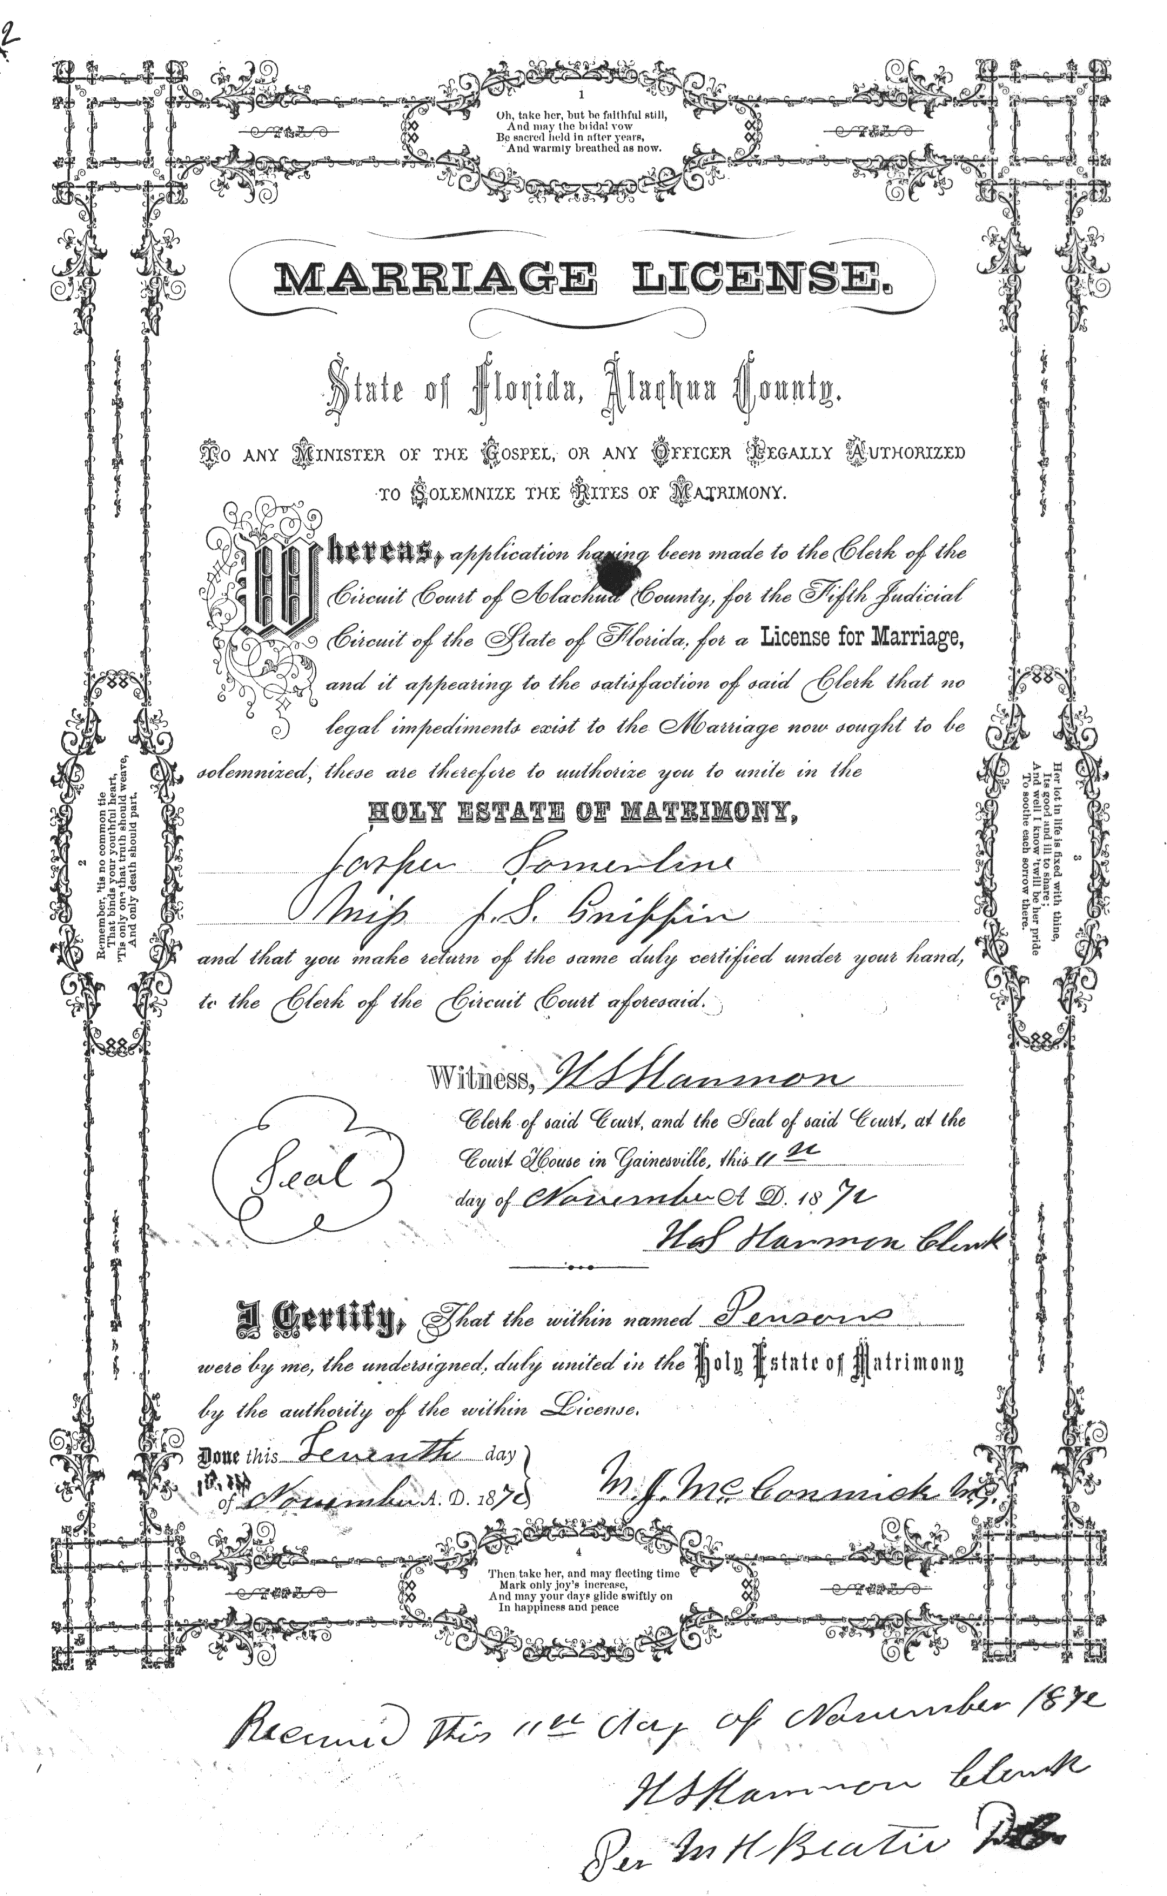 2
1
Oh, take her, but be faithful still,
And may the bridal vow
Be sacred held in after years,
And warmly breathed as now.
MARRIAGE LICENSE.
State of Florida, Alachua County.
TO ANY MINISTER OF THE GOSPEL, OR ANY OFFICER LEGALLY AUTHORIZED
TO SOLEMNIZE THE RITES OF MATRIMONY.
Whereas, application having been made to the Clerk of the
Circuit Court of Alachua County, for the Fifth Judicial
Circuit of the State of Florida, for a License for Marriage,
and it appearing to the satisfaction of said Clerk that no
legal impediments exist to the Marriage now sought to be
solemnized; these are therefore to authorize you to unite in the
HOLY ESTATE OF MATRIMONY,
Jasper Somerline
Miss J. S. Griffin
and that you make return of the same duly certified under your hand,
to the Clerk of the Circuit Court aforesaid.
2
Remember, 'tis no common tie
That binds your youthful heart,
'Tis only one that truth should weave,
And only death should part.
3
Her lot in life is fixed with thine,
Its good and ill to share;
And well I know 'twill be her pride
To soothe each sorrow there.
Witness, H S Harmon
Clerk of said Court, and the Seal of said Court, at the
Court House in Gainesville, this 11th
day of November A D. 1872
Seal
H S Harmon Clerk
I Certify, That the within named Persons
were by me, the undersigned, duly united in the Holy Estate of Matrimony
by the authority of the within License.
Done this Seventh day
of November A. D. 1872
M. J. McCormick M.G.
4
Then take her, and may fleeting time
Mark only joy's increase,
And may your days glide swiftly on
In happiness and peace
Received this 11th day of November 1872
H S Harmon Clerk
Per M H Beatie